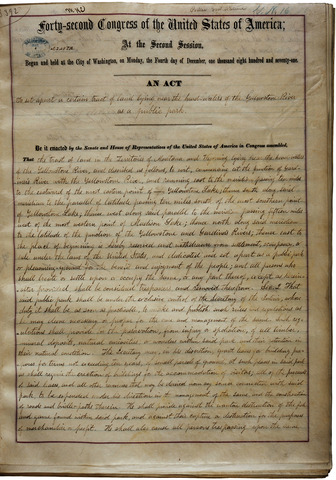 Forty-second Congress of the United States of America;
At the Second Session,
Begun and held at the City of Washington, on Monday, the Fourth day of December, one thousand eight hundred and seventy-one.
AN ACT
To set apart a certain tract of land lying near the head-waters of the Yellowstone River
as a public park.
Be it enacted by the Senate and House of Representatives of the United States of America in Congress assembled,
That the tract of land in the Territories of Montana and Wyoming lying near the head-waters
of the Yellowstone River, and described as follows, to wit, commencing at the junction of Gardi-
ner's River with the Yellowstone River, and running east to the meridian passing ten miles
to the eastward of the most eastern point of Yellowstone Lake; thence south along said
meridian to the parallel of latitude passing ten miles south of the most southern point
of Yellowstone Lake; thence west along said parallel to the meridian passing fifteen miles
west of the most western point of Madison Lake; thence north along said meridian
to the latitude of the junction of the Yellowstone and Gardiner's Rivers; thence east to
the place of beginning is hereby reserved and withdrawn from settlement, occupancy, or
sale under the laws of the United States, and dedicated and set apart as a public park
or pleasuring ground for the benefit and enjoyment of the people; and all persons who
shall locate or settle upon or occupy the same, or any part thereof, except as herein-
after provided, shall be considered trespassers and removed therefrom. Sec. 2. That
said public park shall be under the exclusive control of the Secretary of the Interior, whose
duty it shall be, as soon as practicable, to make and publish such rules and regulations as
he may deem necessary or proper for the care and management of the same. Such reg-
ulations shall provide for the preservation, from injury or spoliation, of all timber,
mineral deposits, natural curiosities, or wonders within said park, and their retention in
their natural condition. The Secretary may, in his discretion, grant leases for building pur-
poses for terms not exceeding ten years, of small parcels of ground, at such places in said park
as shall require the erection of buildings for the accommodation of visitors; all of the proceeds
of said leases, and all other revenues that may be derived from any source connected with said
park, to be expended under his direction in the management of the same, and the construction
of roads and bridle-paths therein. He shall provide against the wanton destruction of the fish
and game found within said park, and against their capture or destruction for the purposes
of merchandise or profit. He shall also cause all persons trespassing upon the same